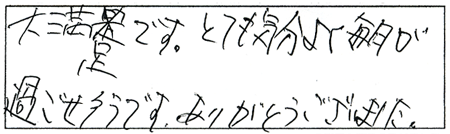 大満足です。とても気分よく毎日が
過ごせそうです。ありがとうございました。